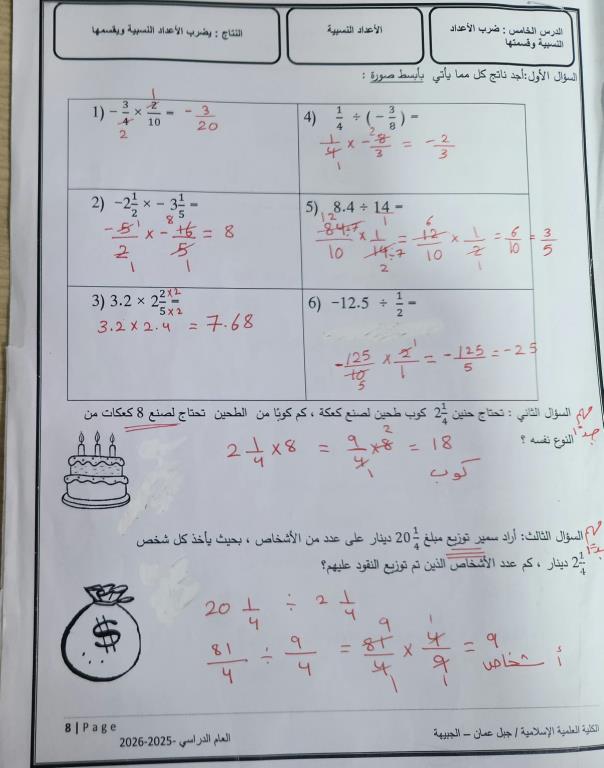 الدرس الخامس : ضرب الأعداد النسبية وقسمتها
الأعداد النسبية
النتاج : يضرب الأعداد النسبية ويقسمها
السؤال الأول:أجد ناتج كل مما يأتي بأبسط صورة :
1) − 3/4 × 2/10 = − 3/20
1
2
4) 1/4 ÷ (− 3/8) =
1/4 × − 8/3 = − 2/3
2
1
2) −2 1/2 × − 3 1/5 =
− 5/2 × − 16/5 = 8
1 8
1 1
5) 8.4 ÷ 14 =
12 1
84÷7/10 × 1/14÷7 = 12/10 × 1/2 = 6/10 = 3/5
2 6 1
3) 3.2 × 2 2/5 =
×2
×2
3.2 × 2.4 = 7.68
6) −12.5 ÷ 1/2 =
− 125/10 × 2/1 = − 125/5 = − 25
5 1
مهم جدًا
السؤال الثاني : تحتاج حنين 2 1/4 كوب طحين لصنع كعكة ، كم كوبًا من الطحين تحتاج لصنع 8 كعكات من
النوع نفسه ؟
2 1/4 × 8 = 9/4 × 8 = 18
2
1
كوب
مهم جدًا
السؤال الثالث: أراد سمير توزيع مبلغ 20 1/4 دينار على عدد من الأشخاص ، بحيث يأخذ كل شخص
2 1/4 دينار ، كم عدد الأشخاص الذين تم توزيع النقود عليهم؟
20 1/4 ÷ 2 1/4
81/4 ÷ 9/4 = 81/4 × 4/9 = 9
9 1
1 1
أشخاص
$
8 | Page
العام الدراسي -2025-2026
الكلية العلمية الإسلامية / جبل عمان – الجبيهة